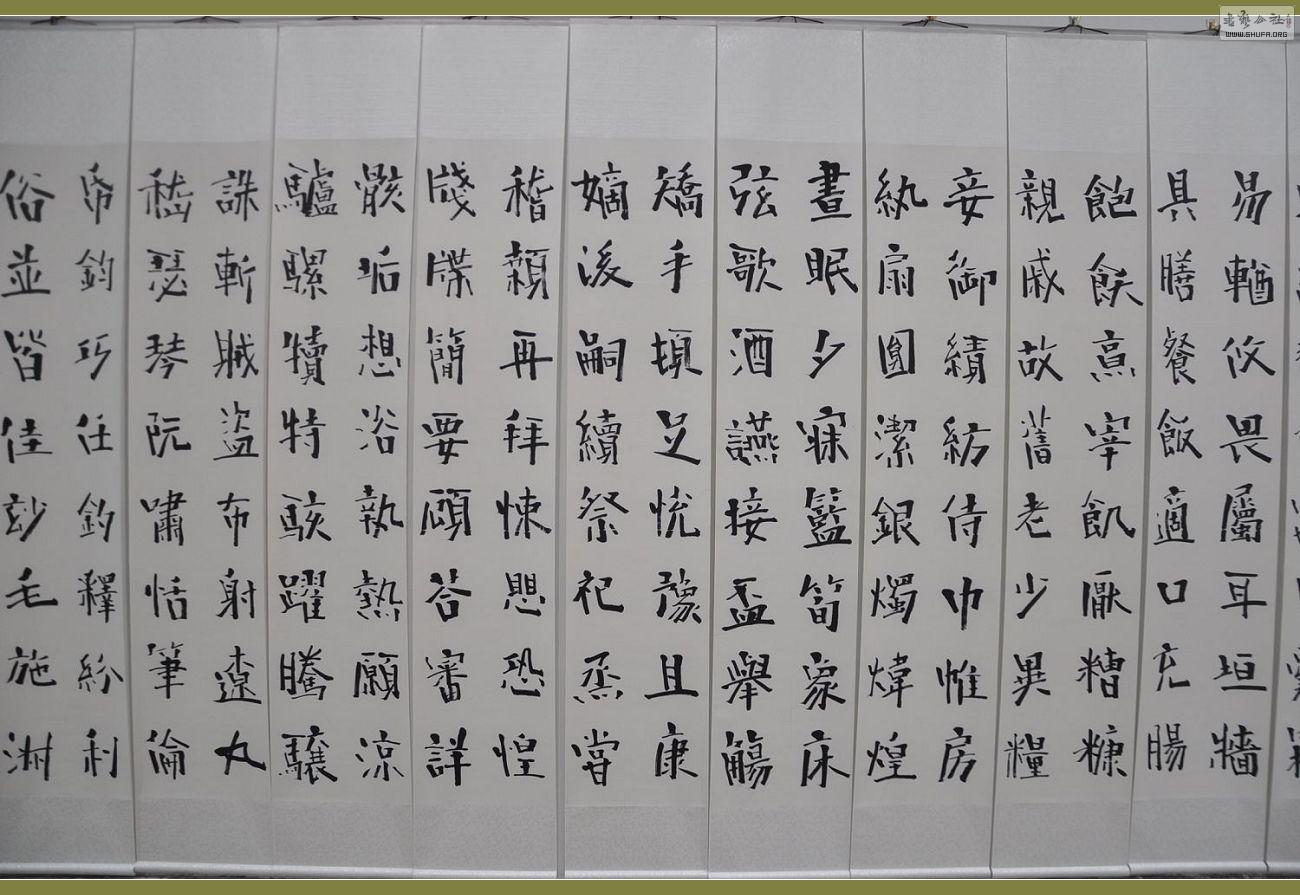 易輶攸畏屬耳垣牆
具膳餐飯適口充腸
飽飫烹宰飢厭糟糠
親戚故舊老少異糧
妾御績紡侍巾帷房
紈扇圓潔銀燭煒煌
晝眠夕寐籃筍象床
弦歌酒讌接盃舉觴
矯手頓足悅豫且康
嫡後嗣續祭祀烝嘗
稽顙再拜悚愳恐惶
牋牒簡要顧答審詳
骸垢想浴執熱願涼
驢騾犢特駭躍騰驤
誅斬賊盜布射遼丸
嵇瑟琴阮嘯恬筆倫
帋鈞巧任釣釋紛利
俗並皆佳玅毛施淑
書藝公社
WWW.SHUFA.ORG